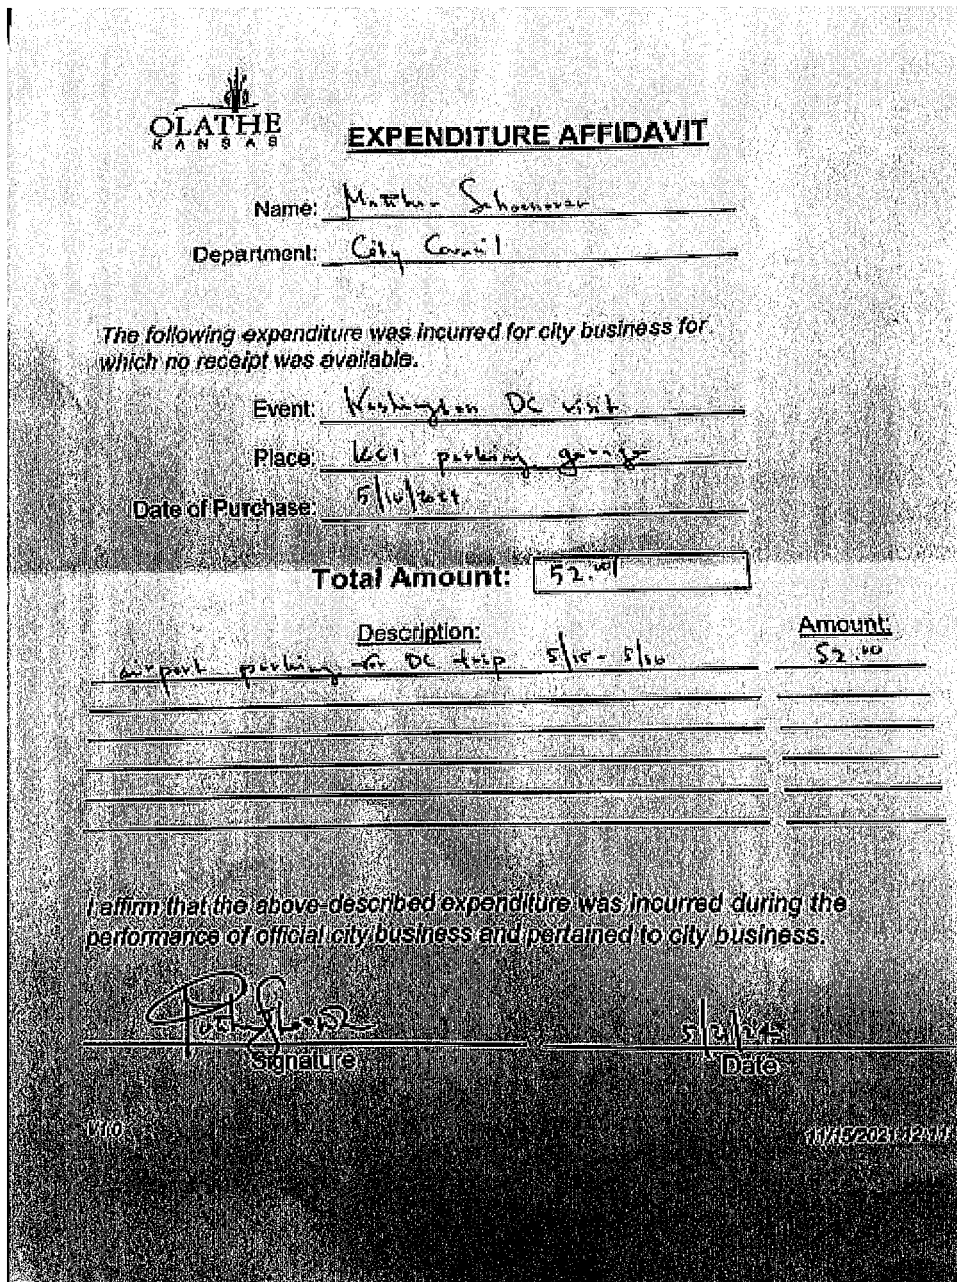 OLATHE
KANSAS
EXPENDITURE AFFIDAVIT
Name: Matthew Schoonover
Department: City Council
The following expenditure was incurred for city business for
which no receipt was available.
Event: Washington DC visit
Place: KCI parking garage
Date of Purchase: 5/16/2024
Total Amount: 52.00
Description: Amount:
airport parking for DC trip 5/15 - 5/16 52.00
I affirm that the above-described expenditure was incurred during the
performance of official city business and pertained to city business.
5/21/24
Signature Date
V1.0 11/15/2021 12:11